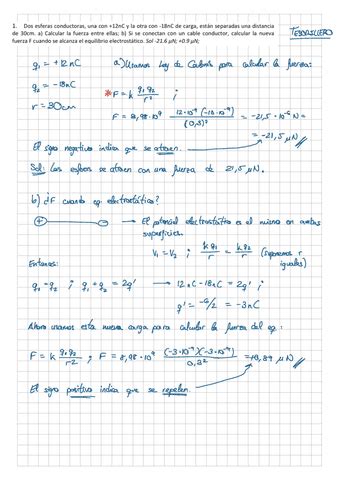 1. Dos esferas conductoras, una con +12nC y la otra con -18nC de carga, están separadas una distancia
de 30cm. a) Calcular la fuerza entre ellas; b) Si se conectan con un cable conductor, calcular la nueva
fuerza F cuando se alcanza el equilibrio electrostático. Sol -21.6 µN; +0.9 µN;
q₁ = +12 nC
q₂ = -18nC
r = 30cm
a) Usamos Ley de Coulomb para calcular la fuerza:
F = k q₁ q₂ / r² ;
F = 8,98·10⁹ 12·10⁻⁹ (-18·10⁻⁹) / (0,3)² = -21,5·10⁻⁶ N =
= -21,5 µN.
El signo negativo indica que se atraen.
Sol: Las esferas se atraen con una fuerza de 21,5 µN.
b) ¿F cuando eq. electrostático?
+ -
→ El potencial electrostático es el mismo en ambas
superficies.
V₁ = V₂ ; k q₁ / r = k q₂ / r (suponemos r
iguales)
Entonces:
q₁ = q₂ ; q₁ + q₂ = 2q' → 12nC - 18nC = 2q' ;
q' = -6/2 = -3nC
Ahora usamos esta nueva carga para calcular la fuerza del eq.:
F = k q₁ q₂ / r² ; F = 8,98·10⁹ (-3·10⁻⁹)(-3·10⁻⁹) / 0,3² = +0,89 µN
El signo positivo indica que se repelen.